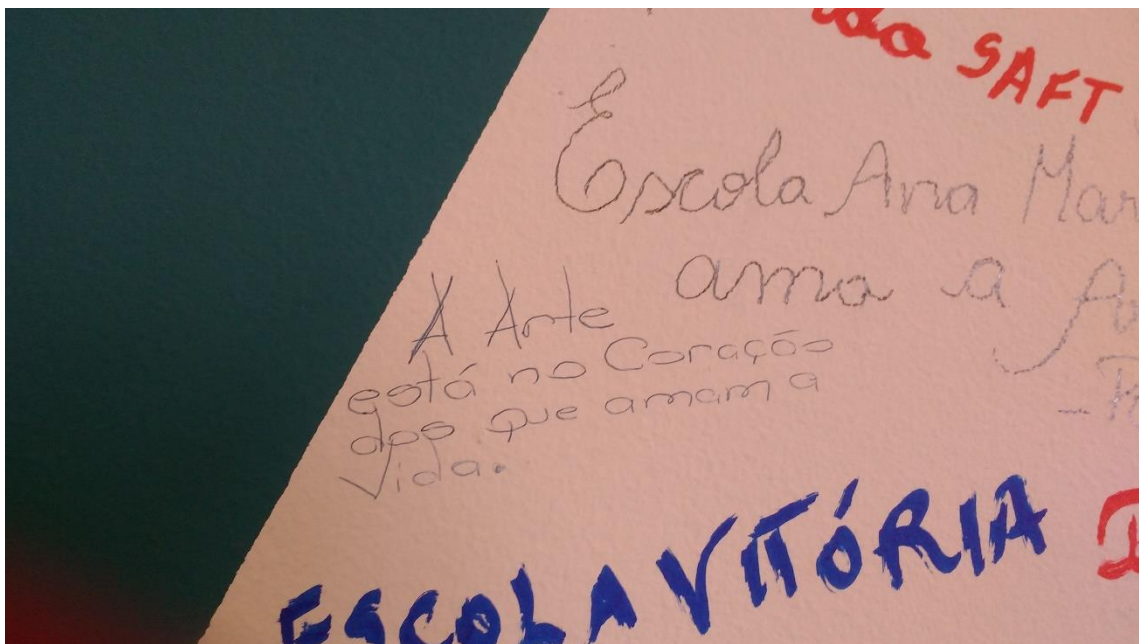 SAFT
Escola Ana
ama a
A Arte
está no Coração
dos que amam a
Vida.
ESCOLA VITÓRIA